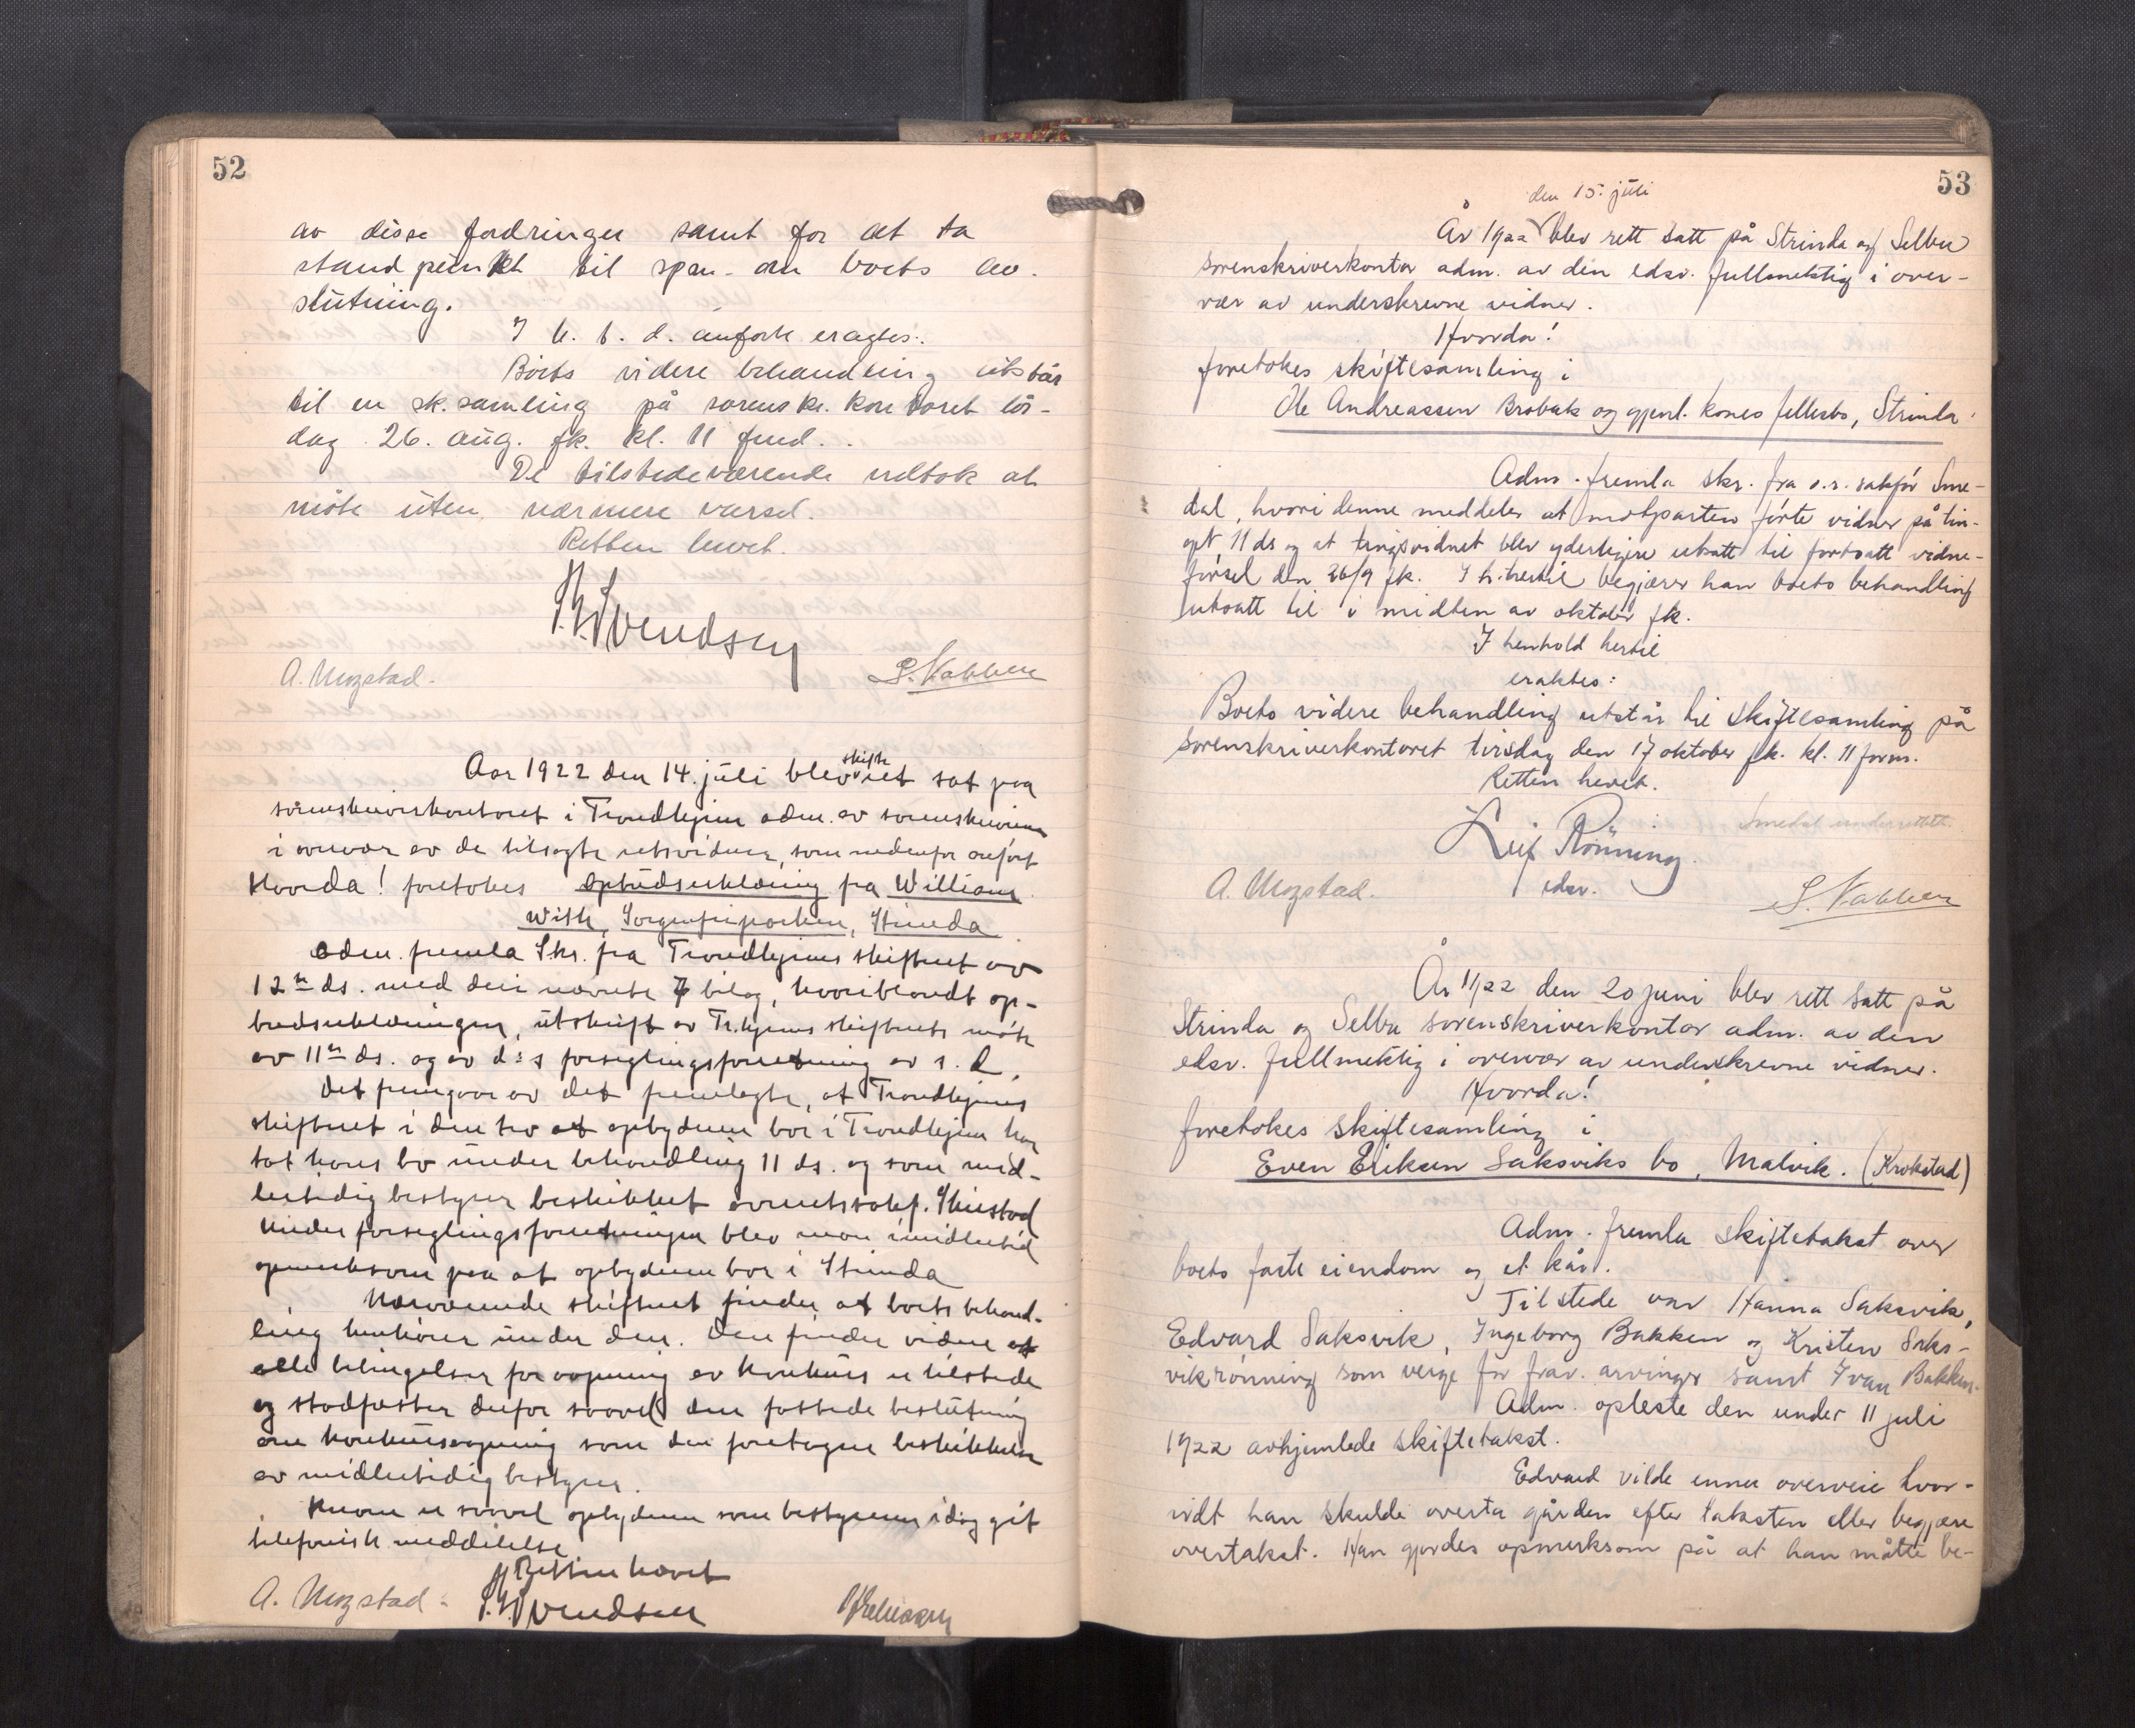 52
av disse fordringer samt for at ta
standpunkt til spm. om boets av-
slutning.
I h. t. d. anførte eragtes:
Boets videre behandling utstår
til en sk.samling på sorenskr.kontoret lör-
dag 26. aug. fk. kl. 11 fmd.
De tilstedeværende vedtok at
möte uten nærmere varsel.
Retten hevet.
Svendsen
A. Mogstad. S. Nabben
Aar 1922 den 14. juli blev skifteret sat paa
sörenskriverkontoret i Trondhjem adm. av sorenskriveren
i overvær av de tilsagte retsvidner, som nedenfor anfört
Hvorda! foretokes opbudserklæring fra William
With, Sorgenfriparken, Strinda
Adm. fremla Skr. fra Trondhjems skifteret av
12te ds. med deri nævnte 7 bilag, hvoriblandt op-
budserklæringen, utskrift av Tr.hjems skifterets möte
av 11te ds. og av d:s forseglingsforretning av s. d.
Det fremgaar av det fremlagte, at Trondhjems
skifteret i den tro at opbyderen bor i Trondhjem har
tat hans bo under behandling 11 ds. og som mid-
lertidig bestyrer beskikket overretssakf.
Under forseglingsforretningen blev man imidlertid
opmerksom paa at opbyderen bor i Strinda
Nærværende skifteret finder at boets behand-
ling henhörer under den. Den finder videre at
alle betingelser for aapning av konkurs er tilstede
og stadfæster derfor saavel den fattede beslutning
om konkursaapning som den foretagne beskikkelse
av midlertidig bestyrer.
Herom er saavel opbyderen som bestyreren idag git
telefonisk meddelelse
Retten hævet
A. Mogstad. Svendsen
53
den 15. juli
År 1922 blev rett satt på Strinda og Selbu
sorenskriverkontor adm. av den edsv. fullmektig i over-
vær av underskrevne vidner.
Hvorda!
foretokes skiftesamling i
Ole Andreassen Brobak og gjenl. kones fellesbo, Strinda.
Adm. fremla skr. fra o.r. sakför Sme-
dal, hvori denne meddeler at motparten förte vidner på tin-
get 11 ds og at tingsvidnet blev yderligere utsatt til fortsatt vidne-
försel den 26/9 fk. I h. hertil begjærer han boets behandling
utsatt til i midten av oktober fk.
I henhold hertil
eraktes:
Boets videre behandling utstår til skiftesamling på
sorenskriverkontoret tirsdag den 17 oktober fk. kl. 11 form.
Retten hevet.
Smedal underrettett.
Leif Rönning
edsv.
A. Mogstad. S. Nabben
År 1922 den 20 juni blev rett satt på
Strinda og Selbu sorenskriverkontor adm. av den
edsv. fullmektig i overvær av underskrevne vidner.
Hvorda!
foretokes skiftesamling i
Even Eriksen Saksviks bo, Malvik. (Krokstad)
Adm. fremla skiftetakst over
boets faste eiendom og et kår.
Tilstede var Hanna Saksvik,
Edvard Saksvik, Ingeborg Bakken og Kristen Saks-
vikrönning som verge for frav. arvinger samt Ivan Bakken.
Adm. opleste den under 11 juli
1922 avhjemlede skiftetakst.
Edvard vilde ennu overveie hvor-
vidt han skulde overta gården efter taksten eller begjære
overtakst. Han gjordes opmerksom på at han måtte be-